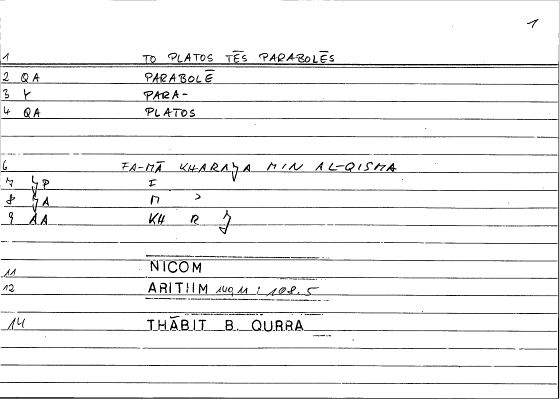 1
1 TO PLATOS TĒS PARABOLĒS
2 QA PARABOLĒ
3 Y PARA-
4 QA PLATOS
6 FA-MĀ KHARAʒA MIN AL-QISMA
7 ʒP I
8 ʒA M ʾ
9 AA KH R ʒ
11 NICOM
12 ARITHM 149,11 : 108.5
14 THĀBIT B. QURRA